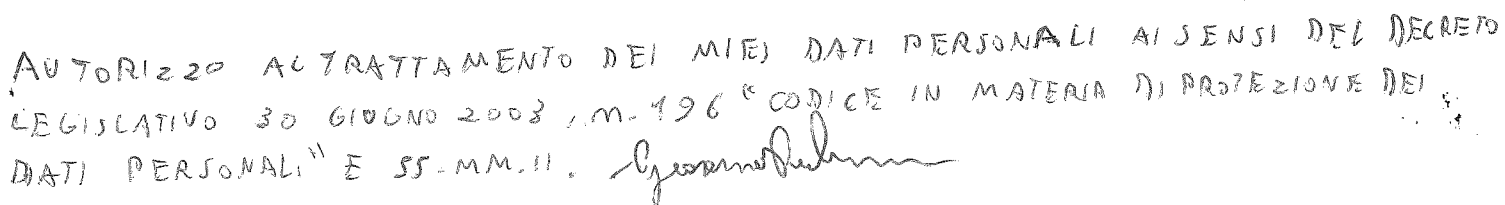 AUTORIZZO AL TRATTAMENTO DEI MIEI DATI PERSONALI AI SENSI DEL DECRETO
LEGISLATIVO 30 GIUGNO 2003, n. 196 "CODICE IN MATERIA DI PROTEZIONE DEI
DATI PERSONALI" E SS.MM.II.